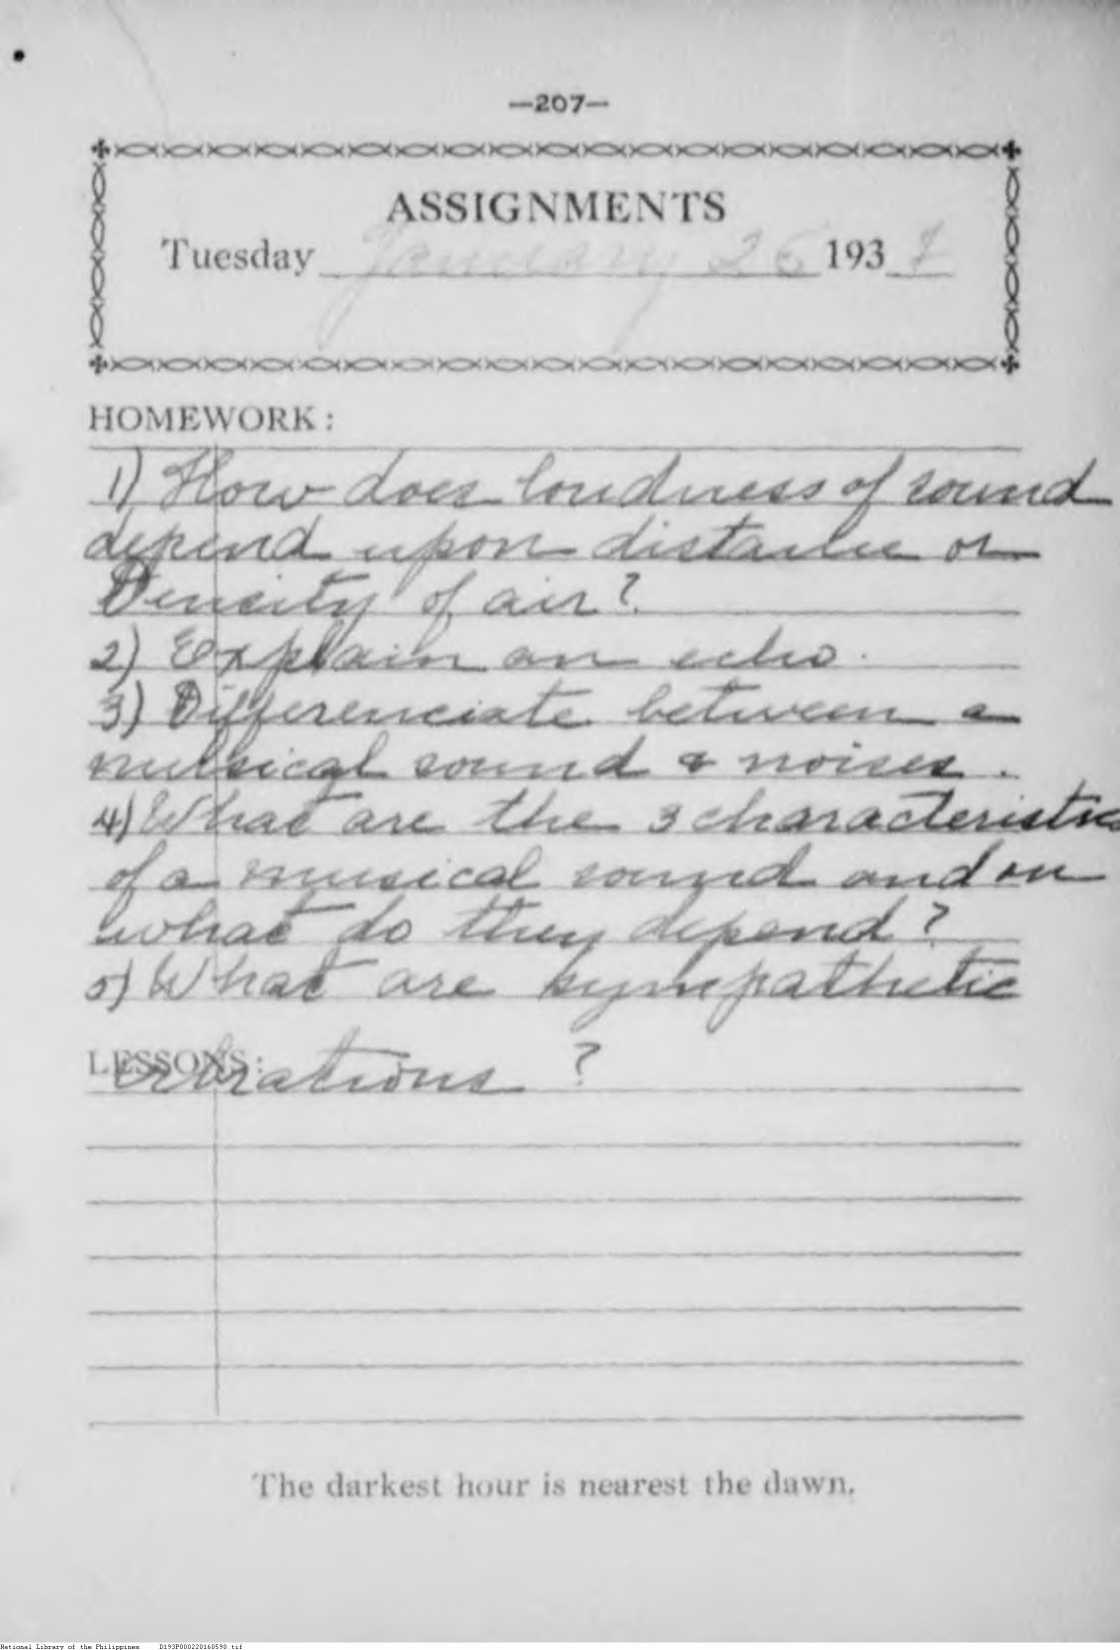 —207—
ASSIGNMENTS
Tuesday January 26 1937
HOMEWORK:
1) How does loudness of sound
depend upon distance or
Dencity of air?
2) Explain an echo.
3) Differenciate between a
musical sound & noises.
4) What are the 3 characteristics
of a musical sound and on
what do they depend?
5) What are sympathetic
LESSONS:
vibrations ?
The darkest hour is nearest the dawn.
National Library of the Philippines D193P000220160590 tif